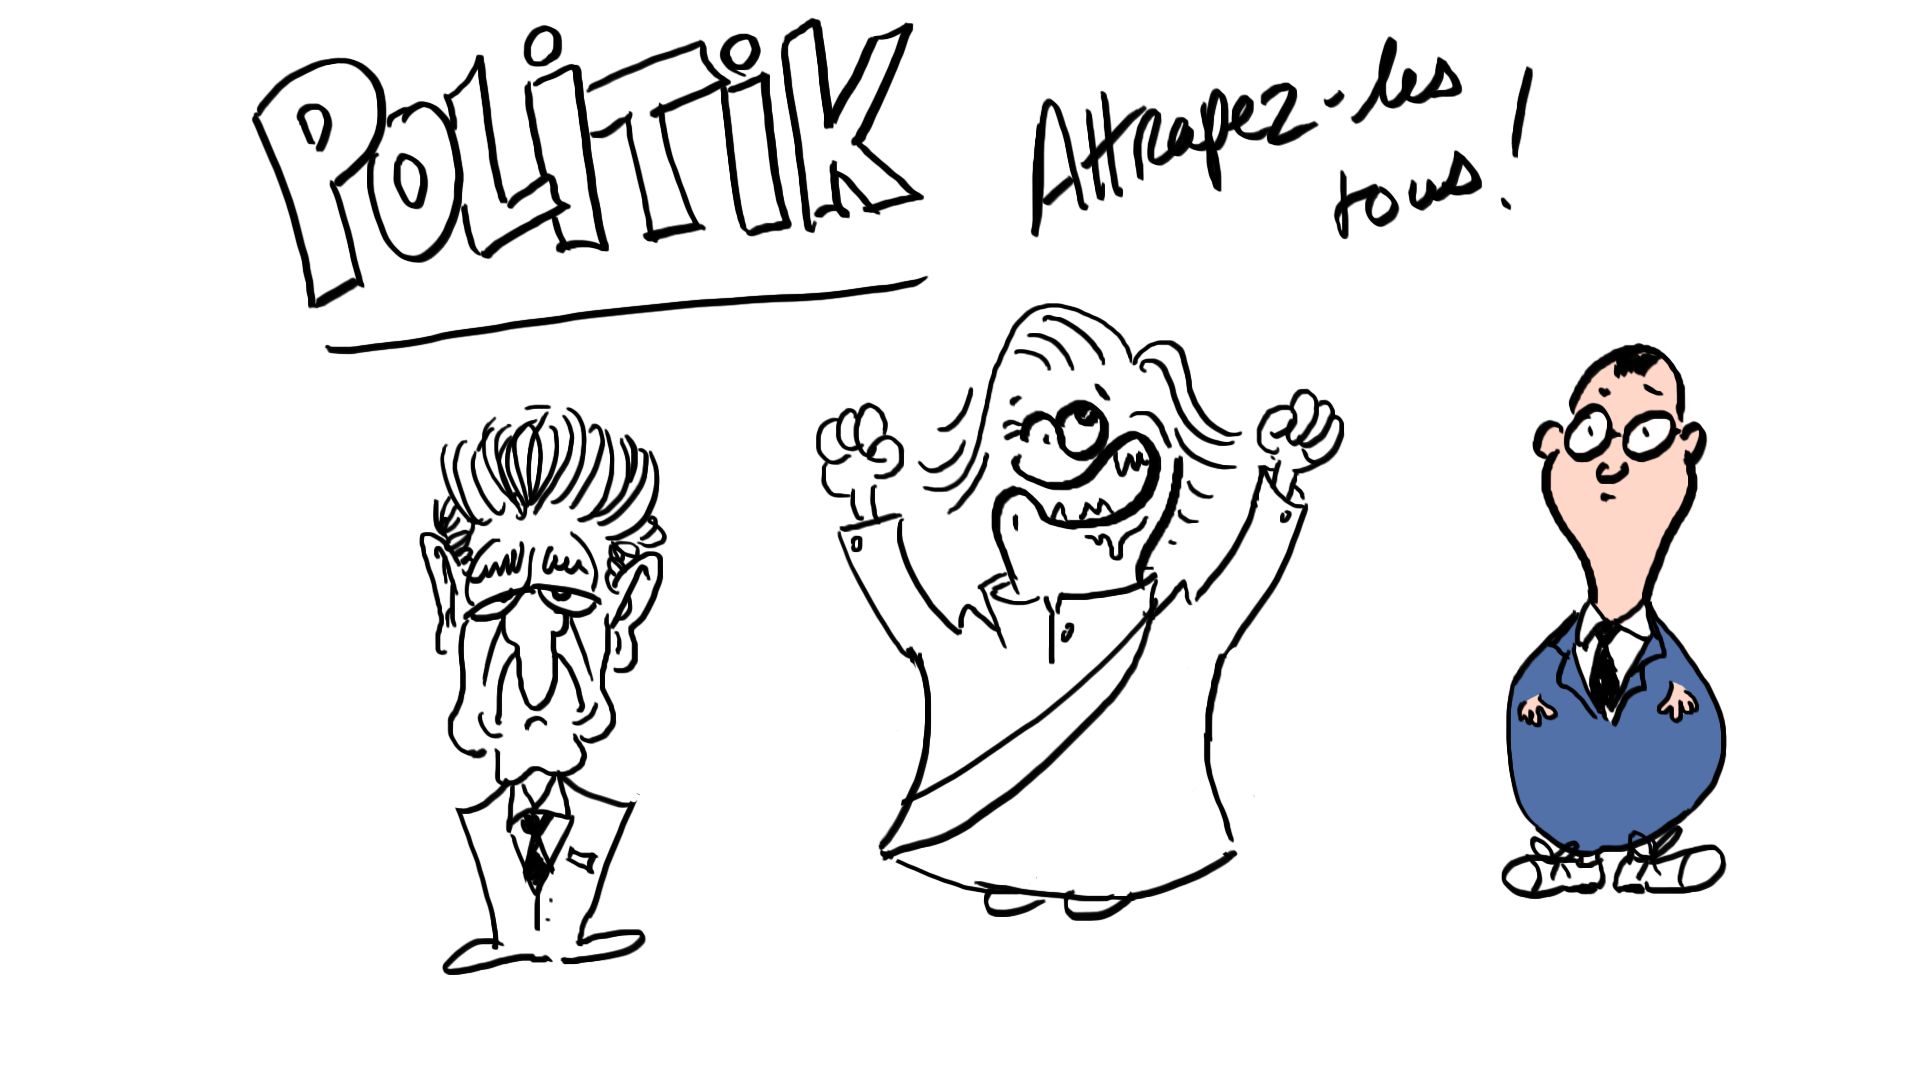 POLiTiK
Attrapez-les
tous!